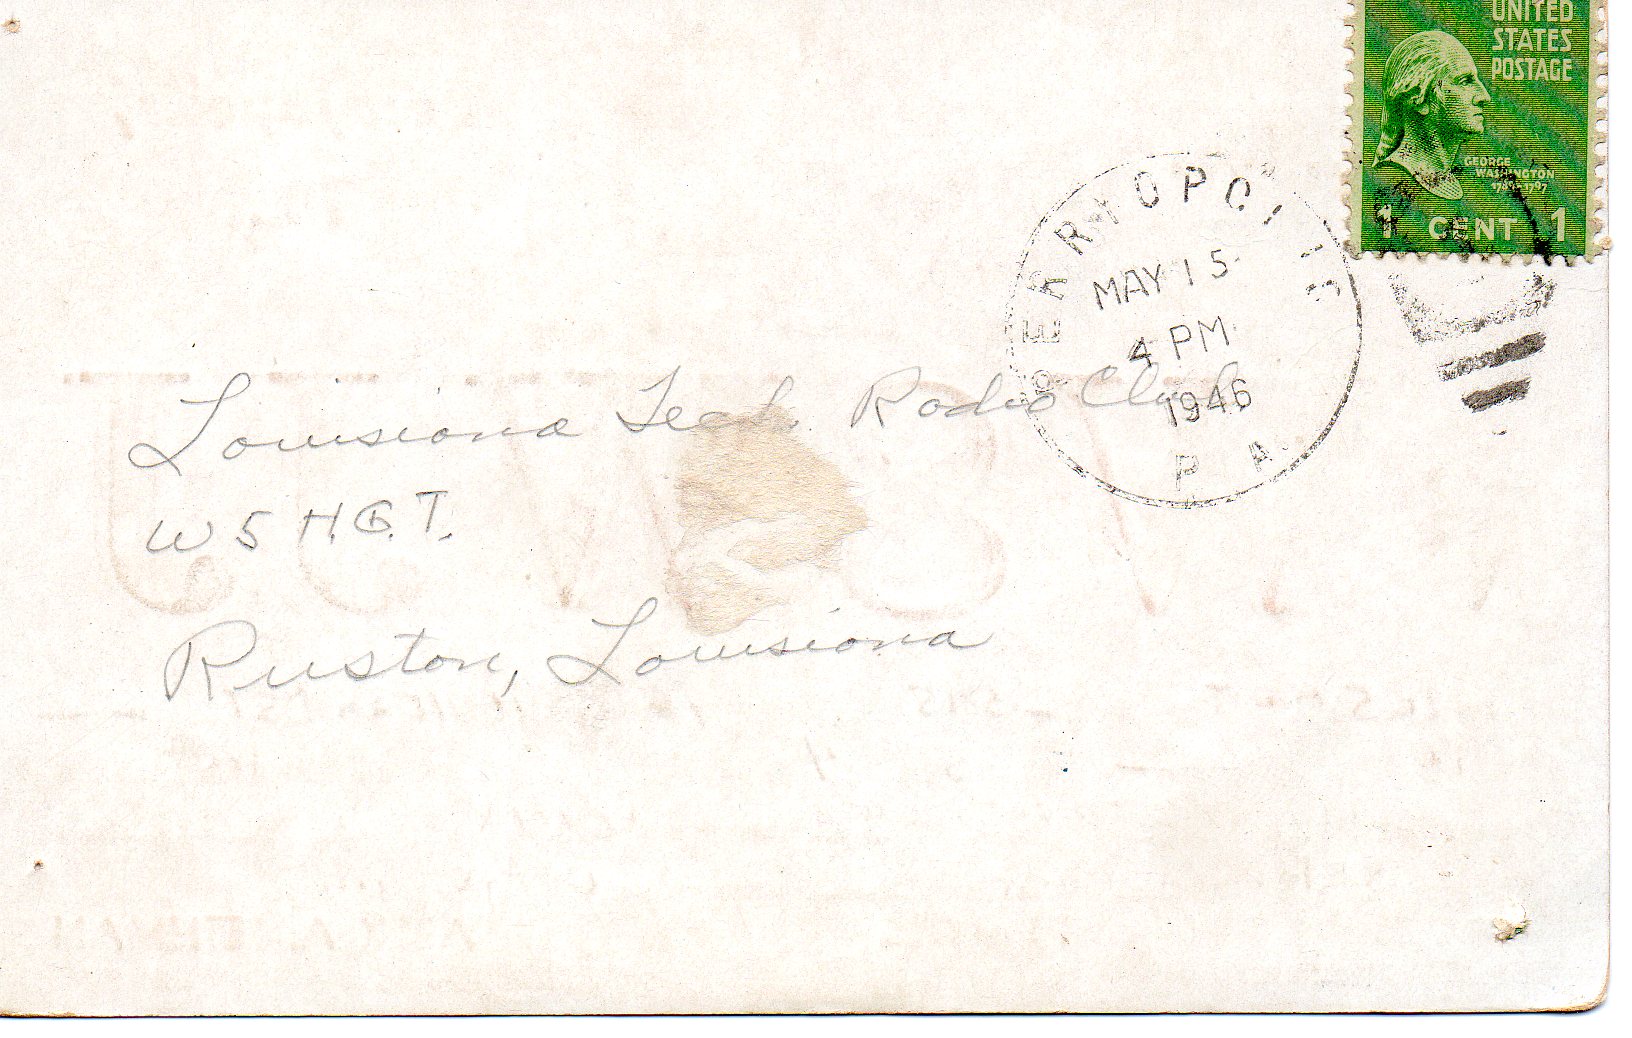 UNITED
STATES
POSTAGE
GEORGE
WASHINGTON
1 CENT 1
PERRYOPOLIS
MAY 15
4 PM
1946
PA.
Louisiana Tech. Radio Club
W5HGT.
Ruston, Louisiana